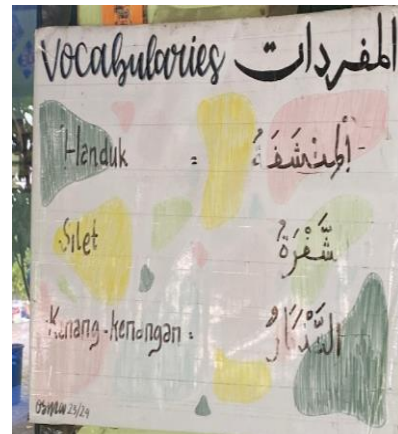 Vocabularies المفردات
Handuk : المِنْشَفَةُ
Silet شَّفْرَةٌ
Kenang-kenangan : التَّذْكَارُ